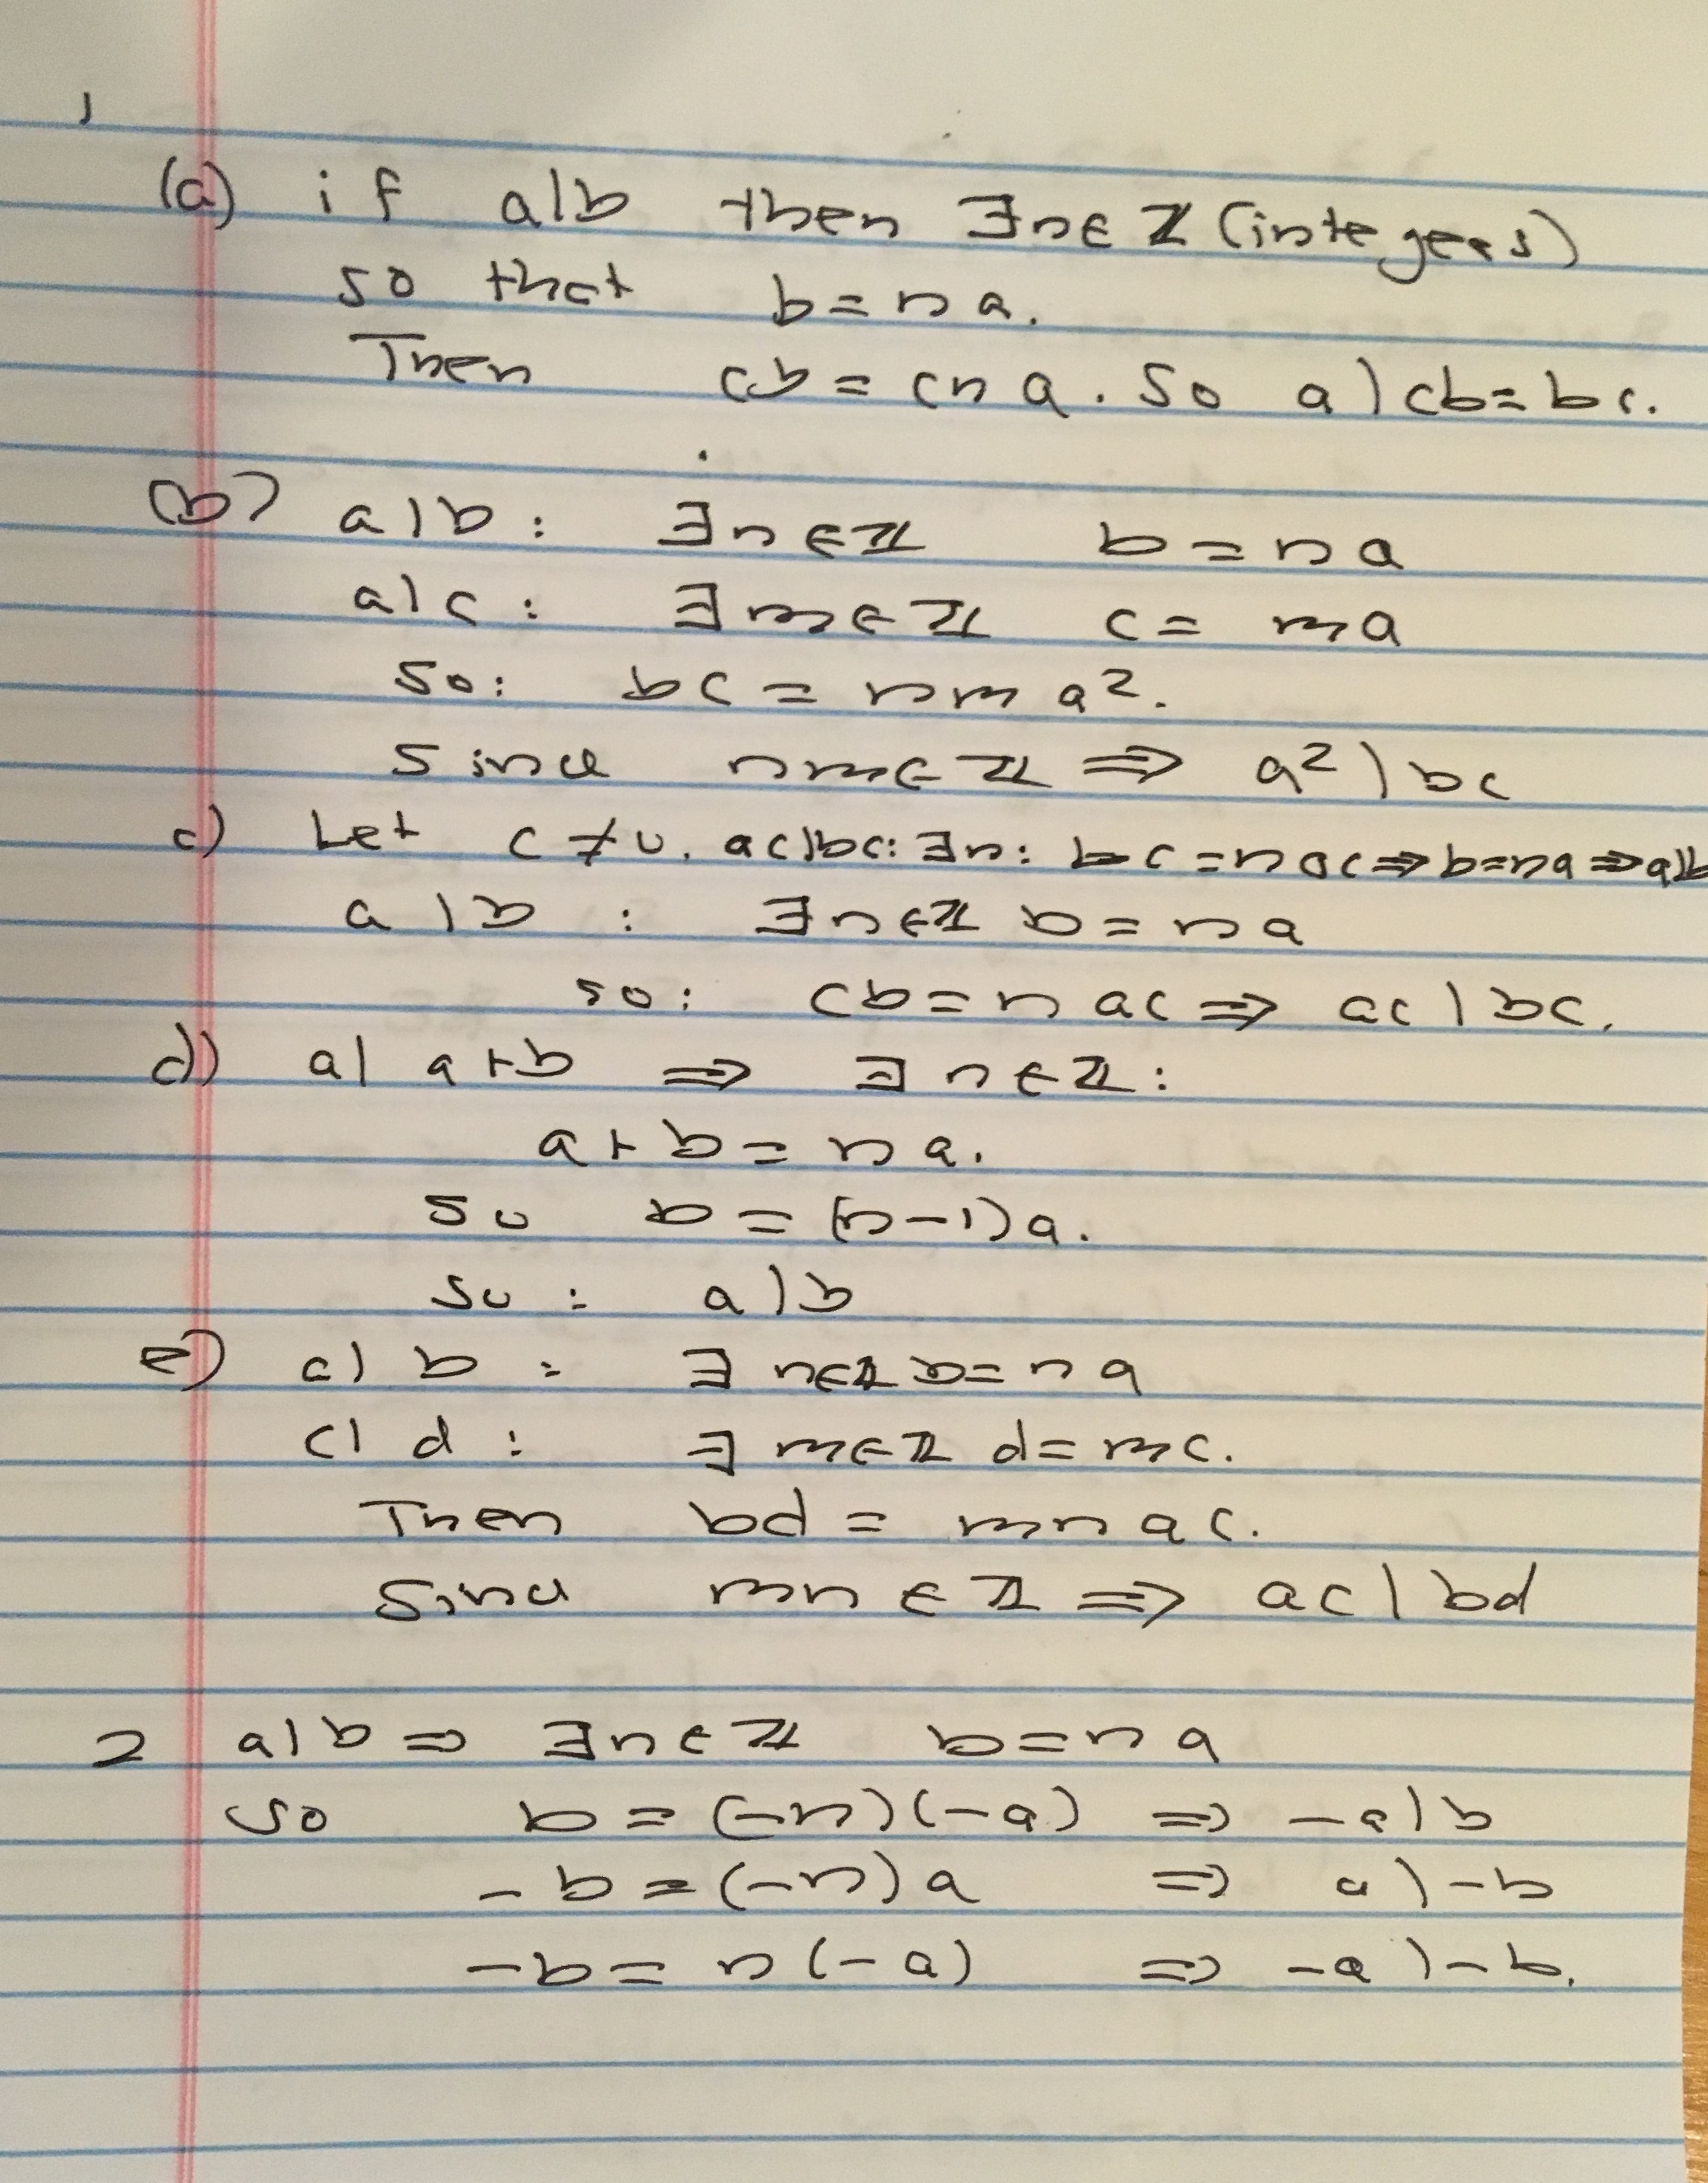 1
(a) if a|b then ∃n∈ℤ (integers)
so that b = na.
Then cb = cna. So a|cb=bc.
(b) a|b: ∃n∈ℤ b = na
a|c: ∃m∈ℤ c = ma
so: bc = nma².
Since nm∈ℤ ⇒ a²|bc
c) Let c≠0. ac|bc: ∃n: bc=nac⇒b=na⇒a|b
a|b : ∃n∈ℤ b = na
so: cb = nac ⇒ ac|bc.
d) a|a+b ⇒ ∃n∈ℤ:
a+b = na.
So b = (n-1)a.
So : a|b
e) a|b : ∃n∈ℤ b=na
c|d : ∃m∈ℤ d=mc.
Then bd = mnac.
Since mn∈ℤ ⇒ ac|bd
2 a|b ⇒ ∃n∈ℤ b=na
So b = (-n)(-a) ⇒ -a|b
-b = (-n)a ⇒ a|-b
-b = n(-a) ⇒ -a|-b.